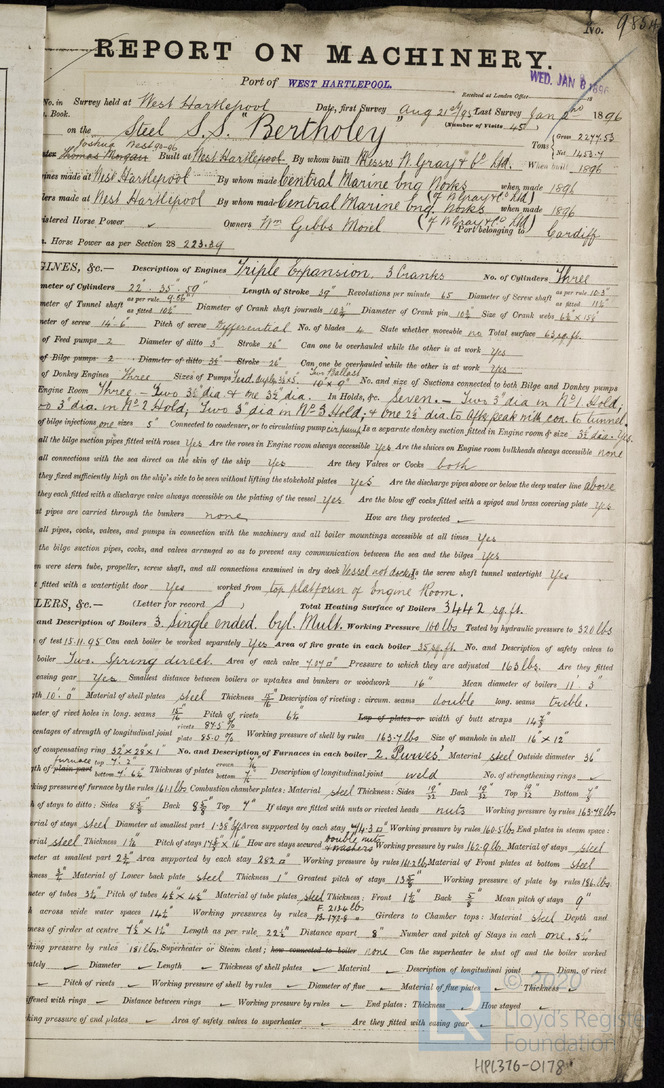 No. 985H
REPORT ON MACHINERY.
Port of WEST HARTLEPOOL.
Received at London Office WED. JAN 8 1896
No. in Survey held at West Hartlepool Date, first Survey Aug 21st/95 Last Survey Jan 2nd 1896
Book. (Number of Visits 45)
on the Steel S.S. "Bertholey" Tons Gross 2247.53 Net 1453.4
Joshua
Thomas Morgan Built at West Hartlepool By whom built Messrs W. Gray & Co Ltd. When built 1896
ines made at West Hartlepool By whom made Central Marine Eng Works (of W Gray & Co Ltd) when made 1896
lers made at West Hartlepool By whom made Central Marine Eng. Works (of W Gray & Co Ltd) when made 1896
istered Horse Power Owners Wm Gibbs Morel Port belonging to Cardiff
. Horse Power as per Section 28 223.39
GINES, &c.— Description of Engines Triple Expansion. 3 Cranks No. of Cylinders Three
meter of Cylinders 22" 35" 59" Length of Stroke 39" Revolutions per minute 65 Diameter of Screw shaft as per rule 10.3" as fitted 11½"
meter of Tunnel shaft as per rule 9.86" as fitted 10½" Diameter of Crank shaft journals 10¾" Diameter of Crank pin 10¾" Size of Crank webs
meter of screw 14'-6" Pitch of screw Differential No. of blades 4 State whether moveable no Total surface 63 sq. ft.
of Feed pumps 2 Diameter of ditto 3" Stroke 26" Can one be overhauled while the other is at work Yes
of Bilge pumps 2 Diameter of ditto 3½" Stroke 26" Can one be overhauled while the other is at work Yes
of Donkey Engines Three Sizes of Pumps Two Ballast 10" x 9" No. and size of Suctions connected to both Bilge and Donkey pumps
Engine Room Three. - Two 3½" dia. & one 3½" dia. In Holds, &c. Seven. - Two 3" dia in No 1. Hold,
wo 3" dia. in No 2 Hold, Two 3" dia in No 3 Hold, & one 2½" dia. to Aft peak with con. to tunnel.
of bilge injections one sizes 5" Connected to condenser, or to circulating pump cir. pump Is a separate donkey suction fitted in Engine room & size 3½" dia. Yes.
all the bilge suction pipes fitted with roses Yes Are the roses in Engine room always accessible Yes Are the sluices on Engine room bulkheads always accessible none
all connections with the sea direct on the skin of the ship Yes Are they Valves or Cocks both
they fixed sufficiently high on the ship's side to be seen without lifting the stokehold plates Yes Are the discharge pipes above or below the deep water line above
they each fitted with a discharge valve always accessible on the plating of the vessel Yes Are the blow off cocks fitted with a spigot and brass covering plate Yes
t pipes are carried through the bunkers none How are they protected
all pipes, cocks, valves, and pumps in connection with the machinery and all boiler mountings accessible at all times Yes
the bilge suction pipes, cocks, and valves arranged so as to prevent any communication between the sea and the bilges Yes
n were stern tube, propeller, screw shaft, and all connections examined in dry dock Vessel not docked Is the screw shaft tunnel watertight Yes
t fitted with a watertight door Yes worked from top platform of Engine Room.
LERS, &c.— (Letter for record S) Total Heating Surface of Boilers 3442 sq. ft.
and Description of Boilers 3. Single ended. Cyl. Mult. Working Pressure 160 lbs Tested by hydraulic pressure to 320 lbs
of test 15.11.95 Can each boiler be worked separately Yes Area of fire grate in each boiler 35 sq. ft. No. and Description of safety valves to
boiler Two. Spring direct. Area of each valve 7.07" Pressure to which they are adjusted 163 lbs. Are they fitted
easing gear Yes Smallest distance between boilers or uptakes and bunkers or woodwork 16" Mean diameter of boilers 11' 3"
th 10'.0" Material of shell plates steel Thickness 15/16" Description of riveting: circum. seams double long. seams treble.
meter of rivet holes in long. seams 15/16" Pitch of rivets Lap of plates or width of butt straps
centages of strength of longitudinal joint rivets 87.5% plate 85.0% Working pressure of shell by rules 163.7 lbs Size of manhole in shell 16" x 12"
of compensating ring 32" x 28" x 1" No. and Description of Furnaces in each boiler 2. Purves' Material steel Outside diameter 36"
gth of plain part furnace top 7'.2" bottom Thickness of plates crown bottom Description of longitudinal joint weld No. of strengthening rings
king pressure of furnace by the rules 161.1 lbs Combustion chamber plates: Material steel Thickness: Sides 19/32 Back 19/32 Top 19/32 Bottom
h of stays to ditto: Sides Back Top If stays are fitted with nuts or riveted heads nuts Working pressure by rules 163.48 lbs
erial of stays steel Diameter at smallest part 1.38" Area supported by each stay Working pressure by rules 160.5 lbs End plates in steam space:
erial steel Thickness Pitch of stays How are stays secured Double nuts & washers Working pressure by rules 162.9 lbs. Material of stays steel
meter at smallest part Area supported by each stay 282 Working pressure by rules Material of Front plates at bottom steel
kness Material of Lower back plate steel Thickness 1" Greatest pitch of stays Working pressure of plate by rules 186. lbs.
meter of tubes 3¼" Pitch of tubes 4½" x 4½" Material of tube plates steel Thickness: Front Back Mean pitch of stays 9"
h across wide water spaces 14½" Working pressures by rules F. 213.4 lbs B. 172.8 " Girders to Chamber tops: Material steel Depth and
ness of girder at centre Length as per rule Distance apart 8" Number and pitch of Stays in each one.
king pressure by rules 181 lbs. Superheater or Steam chest; how connected to boiler none Can the superheater be shut off and the boiler worked
ately Diameter Length Thickness of shell plates Material Description of longitudinal joint Diam. of rivet
Pitch of rivets Working pressure of shell by rules Diameter of flue Material of flue plates Thickness
ffened with rings Distance between rings Working pressure by rules End plates: Thickness How stayed
king pressure of end plates Area of safety valves to superheater Are they fitted with easing gear
© 2020
LR
Lloyd's Register
Foundation
HPL376-0178